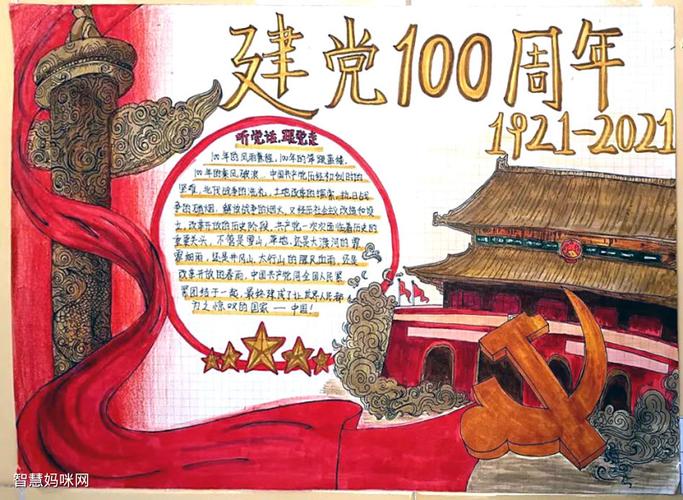 建党100周年
1921-2021
听党话,跟党走
100年的风雨兼程,100年的筚路蓝缕,
100年的乘风破浪。中国共产党历经初创时的
艰难,北伐战争的洗礼,土地改革的探索,抗日战
争的硝烟,解放战争的烟火,又经历社会主义改造和
改革开放的历史阶段,共产党一次次面临着历史的
重要关头,不管是雪山,草地,还是大渡河的霏
霏细雨,还是井冈山,太行山的腥风血雨,还是
改革开放的春雨,中国共产党同全国人民紧
紧团结于一起,最终建成了让世界人民都
为之惊叹的国家——中国!
智慧妈咪网